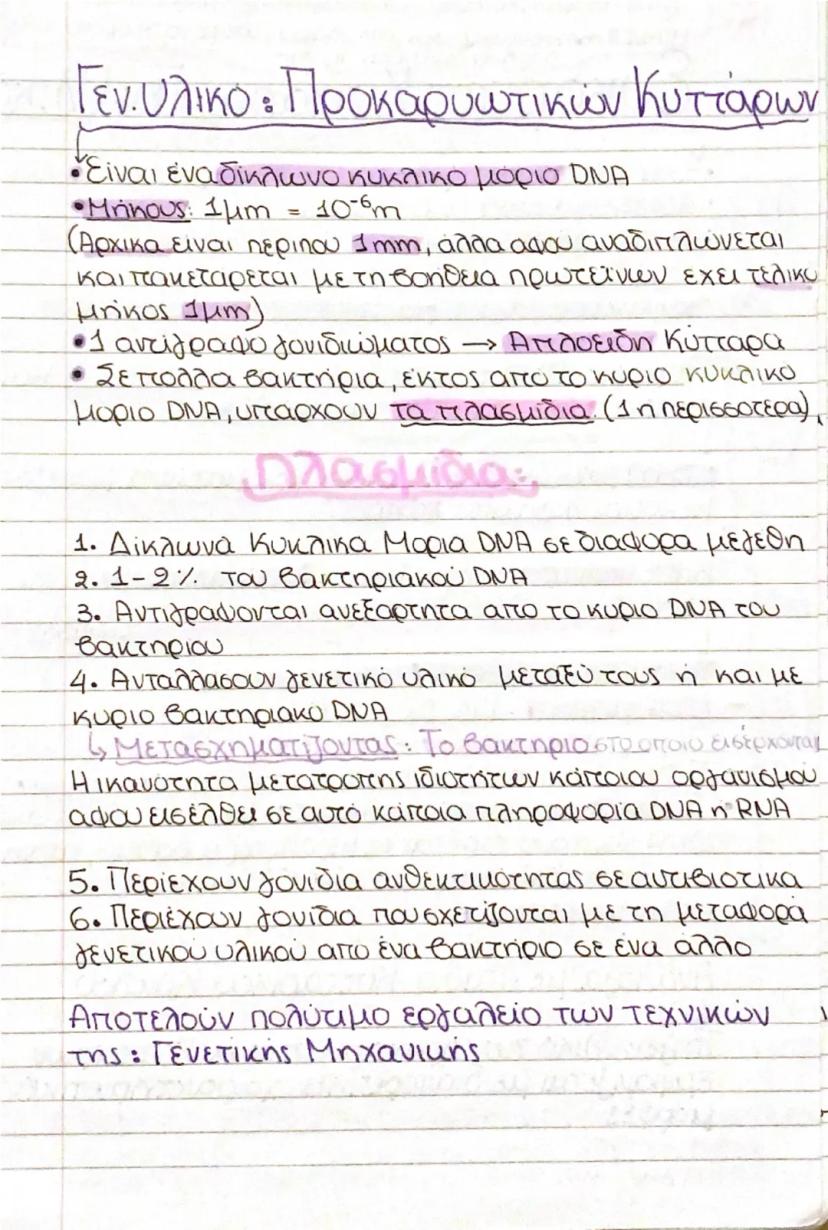 Γεν. Υλικό: Προκαρυωτικών Κυττάρων
• Είναι ένα δίκλωνο κυκλικό μόριο DNA
• Μήκους: 1μm = 10⁻⁶m
(Αρχικά είναι περίπου 1mm, άλλα αφού αναδιπλώνεται
και πακετάρεται με τη βοήθεια πρωτεϊνών έχει τελικό
μήκος 1μm)
• 1 αντίγραφο γονιδιώματος → Απλοειδή Κύτταρα
• Σε πολλά βακτήρια, εκτός από το κύριο κυκλικό
μόριο DNA, υπάρχουν τα πλασμίδια. (1 ή περισσότερα),
Πλασμίδια:
1. Δίκλωνα Κυκλικά Μόρια DNA σε διάφορα μεγέθη
2. 1-2% του βακτηριακού DNA
3. Αντιγράφονται ανεξάρτητα από το κύριο DNA του
βακτηρίου
4. Ανταλλάσουν γενετικό υλικό μεταξύ τους ή και με
κύριο βακτηριακό DNA
↳ Μετασχηματίζοντας: Το βακτήριο στο οποίο εισέρχονται
Η ικανότητα μετατροπής ιδιοτήτων κάποιου οργανισμού
αφού εισέλθει σε αυτό κάποια πληροφορία DNA ή RNA
5. Περιέχουν γονίδια ανθεκτικότητας σε αντιβιοτικά
6. Περιέχουν γονίδια που σχετίζονται με τη μεταφορά
γενετικού υλικού από ένα βακτήριο σε ένα άλλο
Αποτελούν πολύτιμο εργαλείο των τεχνικών
της: Γενετικής Μηχανικής